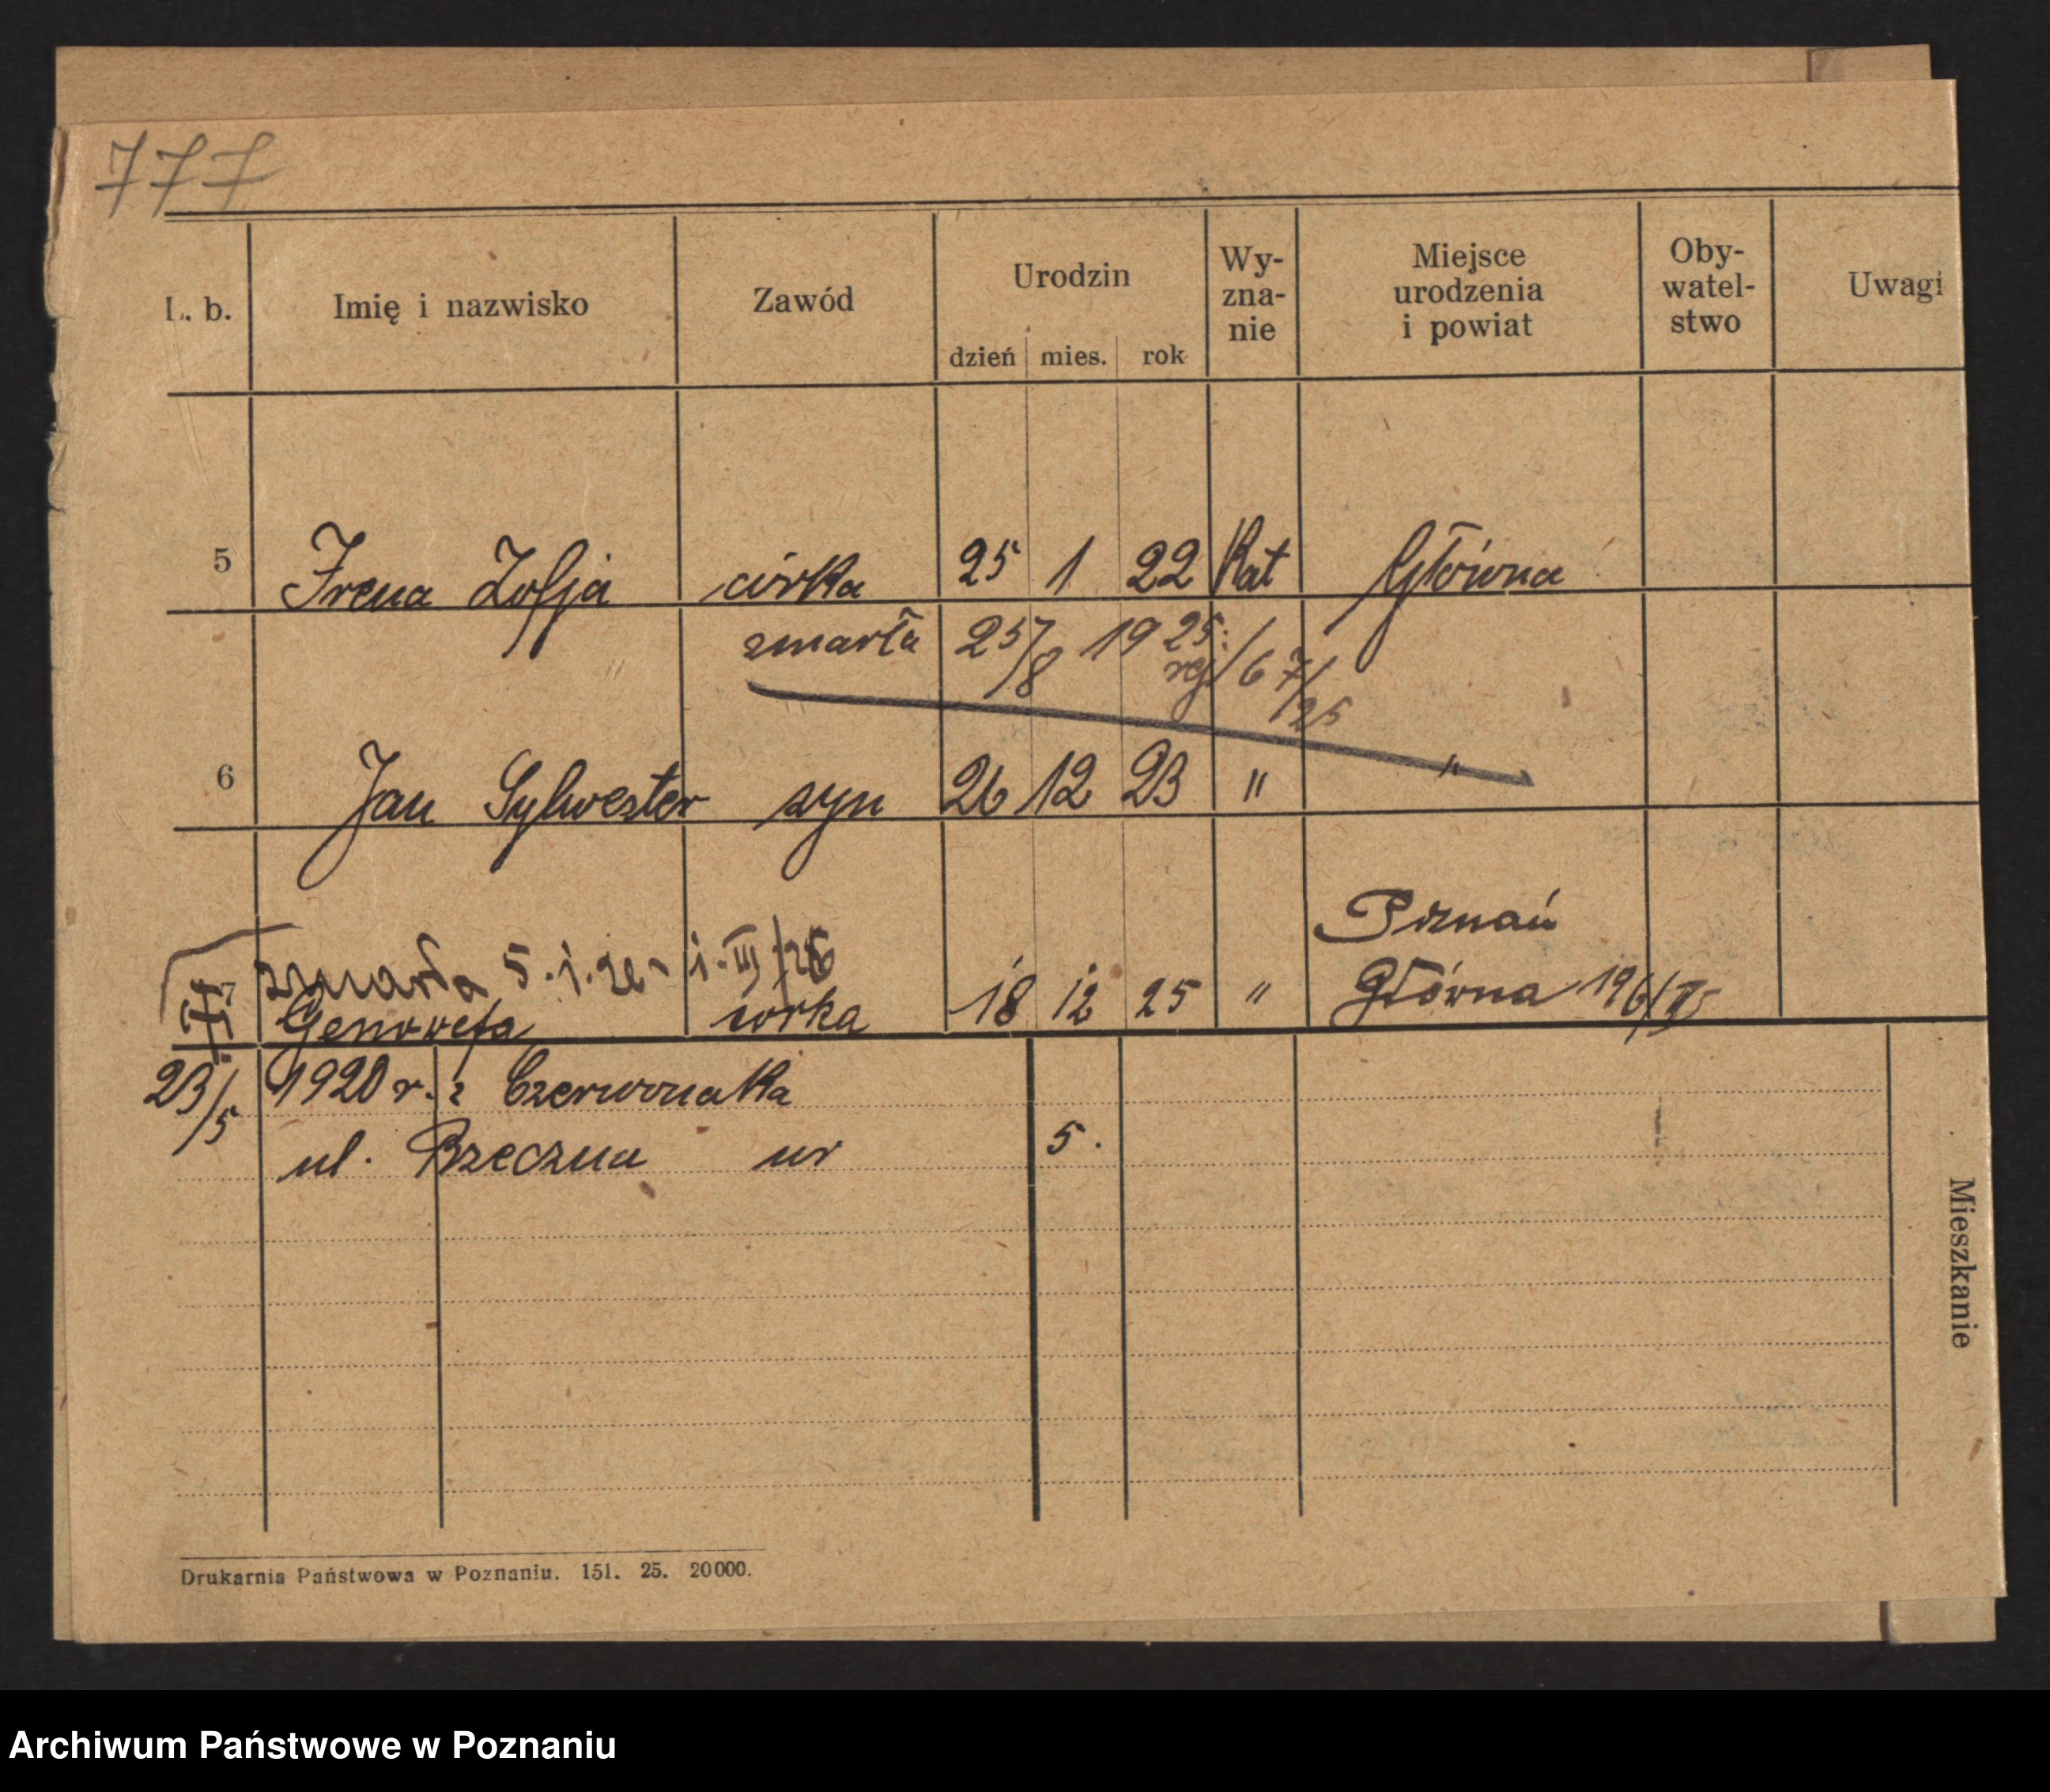 777
L. b.
Imię i nazwisko
Zawód
Urodzin
dzień mies. rok
Wy-
zna-
nie
Miejsce
urodzenia
i powiat
Oby-
watel-
stwo
Uwagi
5 Irena Zofja córka 25 1 22 Kat Główna
zmarła 25/8 1925.
rej. 67/25
6 Jan Sylwester syn 26 12 23 " "
zmarła 5. i. 26 i. III/26 Poznań
7 Genowefa córka 18 12 25 " Główna 196/
23/5 1920 r. z Czerwonaka
ul. Rzeczna nr 5.
Mieszkanie
Drukarnia Państwowa w Poznaniu. 151. 25. 20000.
Archiwum Państwowe w Poznaniu